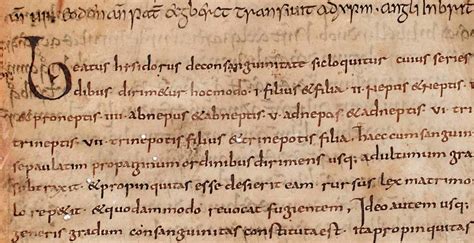 eodem an̄ pat̄ ecgberct transiuit ad xp̄m · angli in brit
Beatus hesidorus deconsanguinitate sicloquitur cuius series
dibus dirimetur hocmodo · i · filius &filia · ii · nepus &neptis ·
&proneptis · iiii · abnepus &abneptis · v · adnepos &adneptis · vi · tri
trineptis · vii · trinepotis filius &trinepotis filia · haecconsanguin
sepaulatim propaginum ordinibus dirimens usq; adultimum gra
subtraxit · &propinquitas esse desierit eam rursus lexmatrimo
lo repetit · &quodammodo reuocat fugientem, Ideo autem usq;
generis gradum consanguinitas constitutaest · itapropinquitas